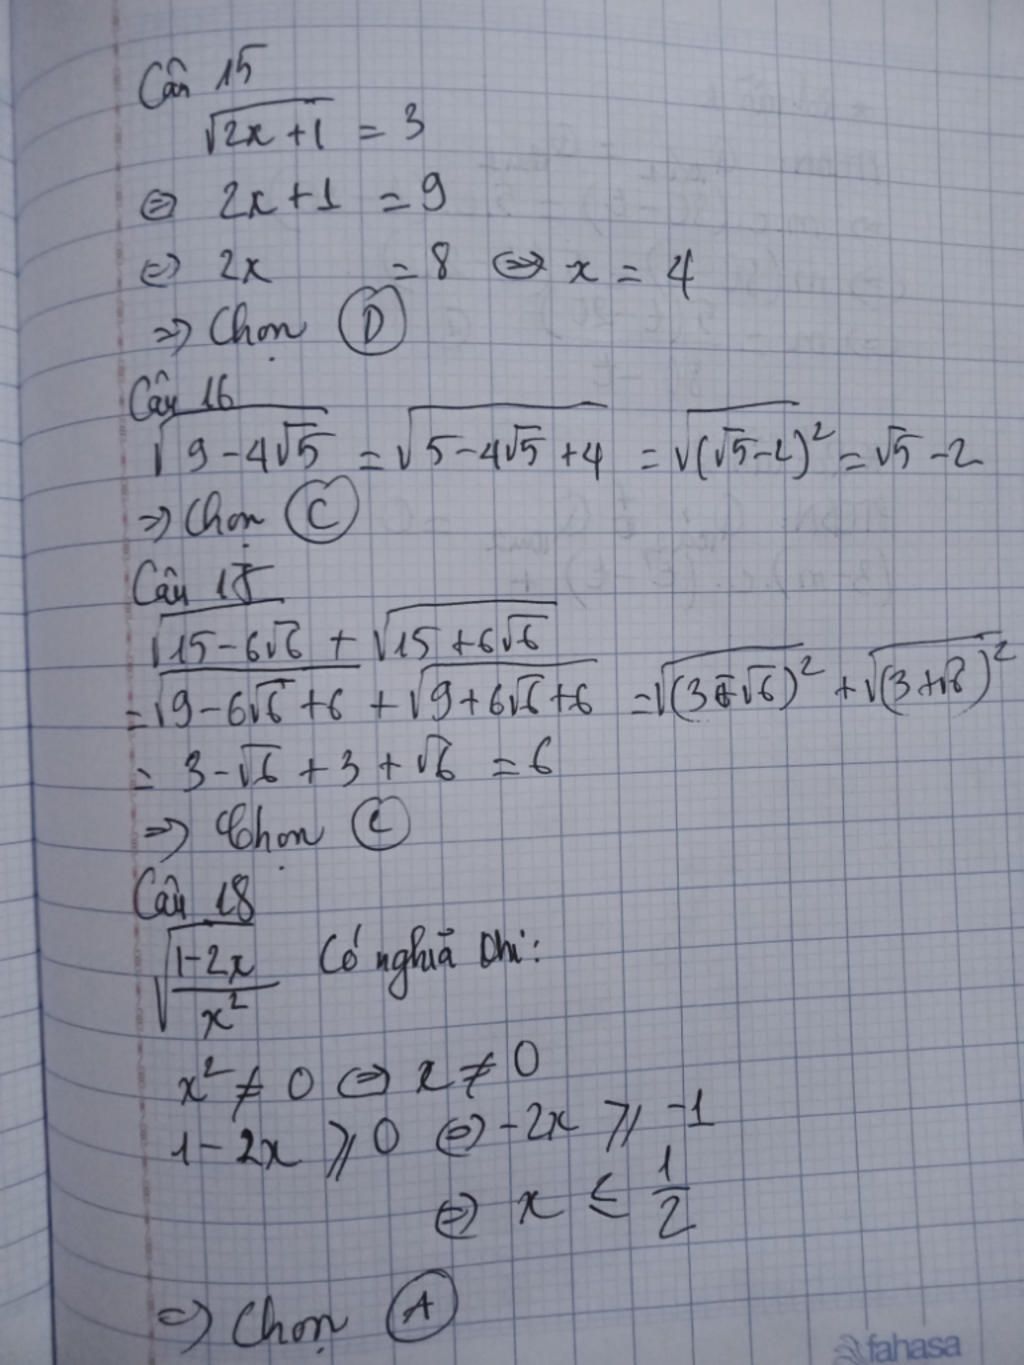 Câu 15
√(2x+1) = 3
⇔ 2x+1 = 9
⇔ 2x = 8 ⇔ x = 4
⇒ Chọn D
Câu 16
√(9-4√5) = √(5-4√5+4) = √(√5-2)² = √5-2
⇒ Chọn C
Câu 17
√(15-6√6) + √(15+6√6)
= √(9-6√6+6) + √(9+6√6+6) = √(3-√6)² + √(3+√6)²
= 3-√6 + 3 + √6 = 6
⇒ Chọn C
Câu 18
√((1-2x)/x²) Có nghĩa khi:
x² ≠ 0 ⇔ x ≠ 0
1-2x ⩾ 0 ⇔ -2x ⩾ -1
⇔ x ≤ 1/2
⇒ Chọn A
fahasa